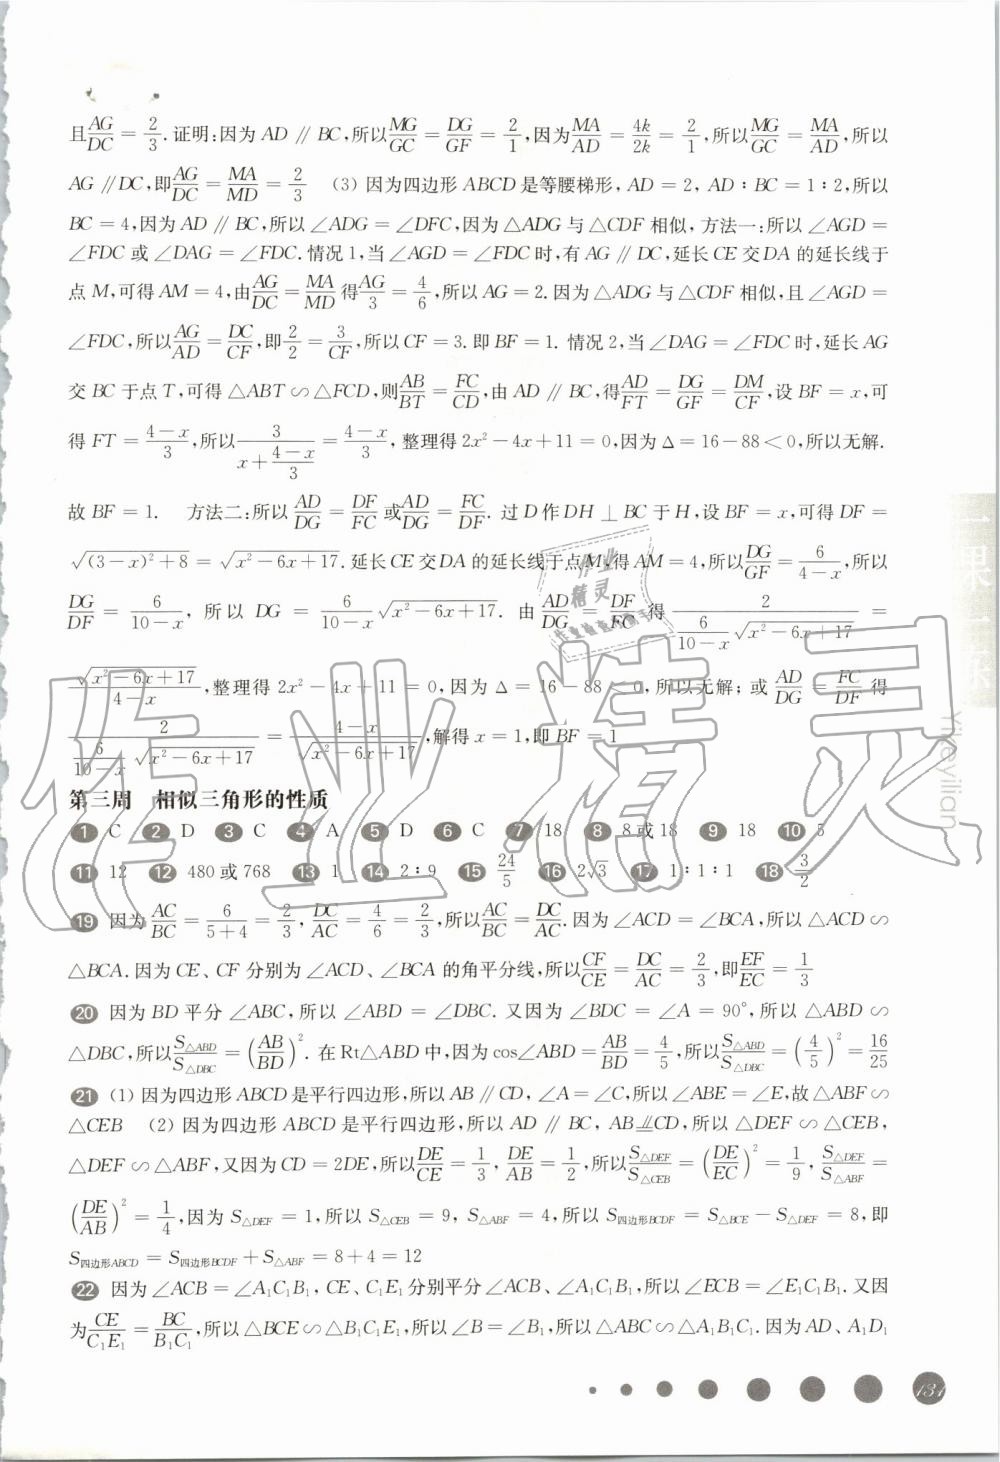 且AG/DC = 2/3. 证明:因为 AD // BC,所以MG/GC = DG/GF = 2/1,因为MA/AD = 4k/2k = 2/1,所以MG/GC = MA/AD,所以
AG // DC,即AG/DC = MA/MD = 2/3 (3) 因为四边形 ABCD 是等腰梯形, AD = 2, AD : BC = 1 : 2,所以
BC = 4,因为 AD // BC,所以 ∠ADG = ∠DFC,因为 △ADG 与 △CDF 相似, 方法一:所以 ∠AGD =
∠FDC 或 ∠DAG = ∠FDC. 情况 1,当 ∠AGD = ∠FDC 时,有 AG // DC,延长 CE 交 DA 的延长线于
点 M,可得 AM = 4,由AG/DC = MA/MD得AG/3 = 4/6,所以 AG = 2. 因为 △ADG 与 △CDF 相似,且 ∠AGD =
∠FDC,所以AG/AD = DC/CF,即2/2 = 3/CF,所以 CF = 3. 即 BF = 1. 情况 2,当 ∠DAG = ∠FDC 时,延长 AG
交 BC 于点 T,可得 △ABT ∽ △FCD,则AB/BT = FC/CD,由 AD // BC,得AD/FT = DG/GF = DM/CF,设 BF = x,可
得 FT = (4-x)/3,所以 3/(x + (4-x)/3) = (4-x)/3, 整理得 2x² - 4x + 11 = 0,因为 Δ = 16 - 88 < 0,所以无解.
故 BF = 1. 方法二:所以 AD/DG = DF/FC 或AD/DG = FC/DF. 过 D 作 DH ⊥ BC 于 H,设 BF = x,可得 DF =
√((3-x)²+8) = √(x²-6x+17). 延长 CE 交 DA 的延长线于点 M,得 AM = 4,所以DG/GF = 6/(4-x),所以
DG/DF = 6/(10-x), 所以 DG = 6/(10-x) √(x²-6x+17). 由 AD/DG = DF/FC 得 2/(6/(10-x) √(x²-6x+17)) =
√(x²-6x+17)/(4-x),整理得 2x² - 4x + 11 = 0,因为 Δ = 16 - 88 < 0,所以无解; 或 AD/DG = FC/DF 得
2/(6/(10-x) √(x²-6x+17)) = (4-x)/√(x²-6x+17),解得 x = 1,即 BF = 1
第三周 相似三角形的性质
1 C 2 D 3 C 4 A 5 D 6 C 7 18 8 8 或 18 9 18 10 5
11 12 12 480 或 768 13 1 14 2 : 9 15 24/5 16 2√3 17 1 : 1 : 1 18 3/2
19 因为AC/BC = 6/(5+4) = 2/3, DC/AC = 4/6 = 2/3,所以AC/BC = DC/AC. 因为 ∠ACD = ∠BCA,所以 △ACD ∽
△BCA. 因为 CE、CF 分别为 ∠ACD、∠BCA 的角平分线,所以CF/CE = DC/AC = 2/3,即EF/EC = 1/3
20 因为 BD 平分 ∠ABC,所以 ∠ABD = ∠DBC. 又因为 ∠BDC = ∠A = 90°,所以 △ABD ∽
△DBC,所以S△ABD/S△DBC = (AB/BD)². 在 Rt△ABD 中,因为 cos∠ABD = AB/BD = 4/5,所以S△ABD/S△DBC = (4/5)² = 16/25
21 (1) 因为四边形 ABCD 是平行四边形,所以 AB // CD, ∠A = ∠C,所以 ∠ABE = ∠E,故 △ABF ∽
△CEB (2) 因为四边形 ABCD 是平行四边形,所以 AD // BC, AB⫽CD,所以 △DEF ∽ △CEB,
△DEF ∽ △ABF,又因为 CD = 2DE,所以DE/CE = 1/3, DE/AB = 1/2,所以S△DEF/S△CEB = (DE/EC)² = 1/9, S△DEF/S△ABF =
(DE/AB)² = 1/4,因为 S△DEF = 1,所以 S△CEB = 9, S△ABF = 4,所以 S四边形BCDF = S△BCE - S△DEF = 8,即
S四边形ABCD = S四边形BCDF + S△ABF = 8 + 4 = 12
22 因为 ∠ACB = ∠A₁C₁B₁, CE、C₁E₁ 分别平分 ∠ACB、∠A₁C₁B₁,所以 ∠ECB = ∠E₁C₁B₁. 又因
为CE/C₁E₁ = BC/B₁C₁,所以 △BCE ∽ △B₁C₁E₁,所以 ∠B = ∠B₁,所以 △ABC ∽ △A₁B₁C₁. 因为 AD、A₁D₁
131
一课一练
Yikeyilian
作业精灵
作业
精灵